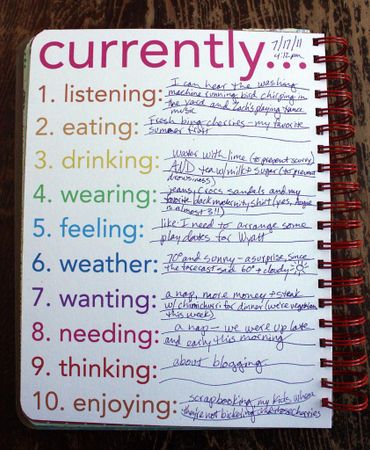 currently...
7/17/11
4:12pm
1. listening: I can hear the washing
machine running, bird chirping in
the yard and Zach's playing trance
music
2. eating: Fresh bing cherries - my favorite
summer fruit
3. drinking: Water with lime (to prevent scurvy)
AND tea w/milk + sugar (to prevent
drowsiness)
4. wearing: jeans, crocs sandals and my
favorite black maternity shirt (yes,
is almost 3!!)
5. feeling: like I need to arrange some
play dates for Wyatt
6. weather: 70° and sunny - a surprise, since
the forecast said 60° + cloudy
7. wanting: a nap, more money + steak
w/chimichurri for dinner (we're vegetarian
this week)
8. needing: a nap - we were up late
and early this morning
9. thinking: about blogging
10. enjoying: scrapbooking, my kids, when
they're not bickering, cherries